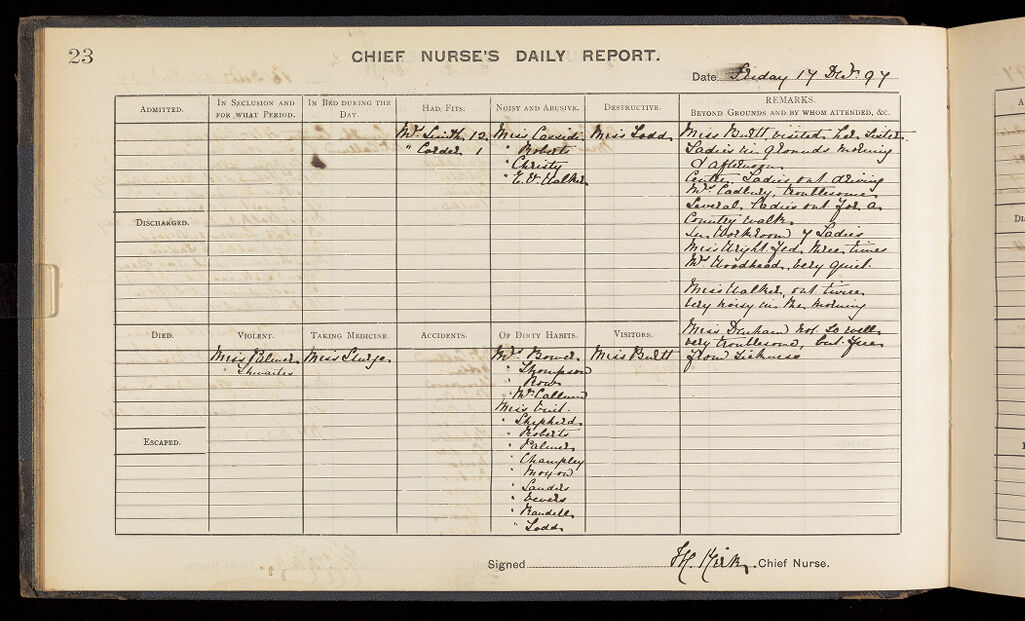 23
CHIEF NURSE'S DAILY REPORT.
Date Friday 17 Decr. 97
ADMITTED.
IN SECLUSION AND FOR WHAT PERIOD.
IN BED DURING THE DAY.
HAD FITS.
NOISY AND ABUSIVE.
DESTRUCTIVE.
REMARKS.
BEYOND GROUNDS AND BY WHOM ATTENDED, &C.
Mrs. Smith 12
" Corder 1
Miss Cassidi
" Roberts
" Christy
" E. V. Walker
Miss Todd
Miss Burtt visited her Sister
Ladies in grounds morning
& afternoon
Centre Ladies out driving
Mrs Cadbury, troublesome
Several Ladies out for a
Country walk
In Workroom 7 Ladies
Miss Wright fed three times
Mrs Woodhead, very quiet.
Miss Walker out twice
very noisy in the morning
Miss Denham not so well
very troublesome, but free
from sickness
DISCHARGED.
DIED.
VIOLENT.
TAKING MEDICINE.
ACCIDENTS.
OF DIRTY HABITS.
VISITORS.
Miss Palmer
" Thwaites
Miss Sturge
Mrs Bower
" Thompson
" Row
" McCallum
Miss
" Shepherd
" Roberts
" Palmer
" Champley
" Moxon
" Sanders
" Vevers
" Randell
" Todd
Miss Burtt
ESCAPED.
Signed H. Kirk, Chief Nurse.